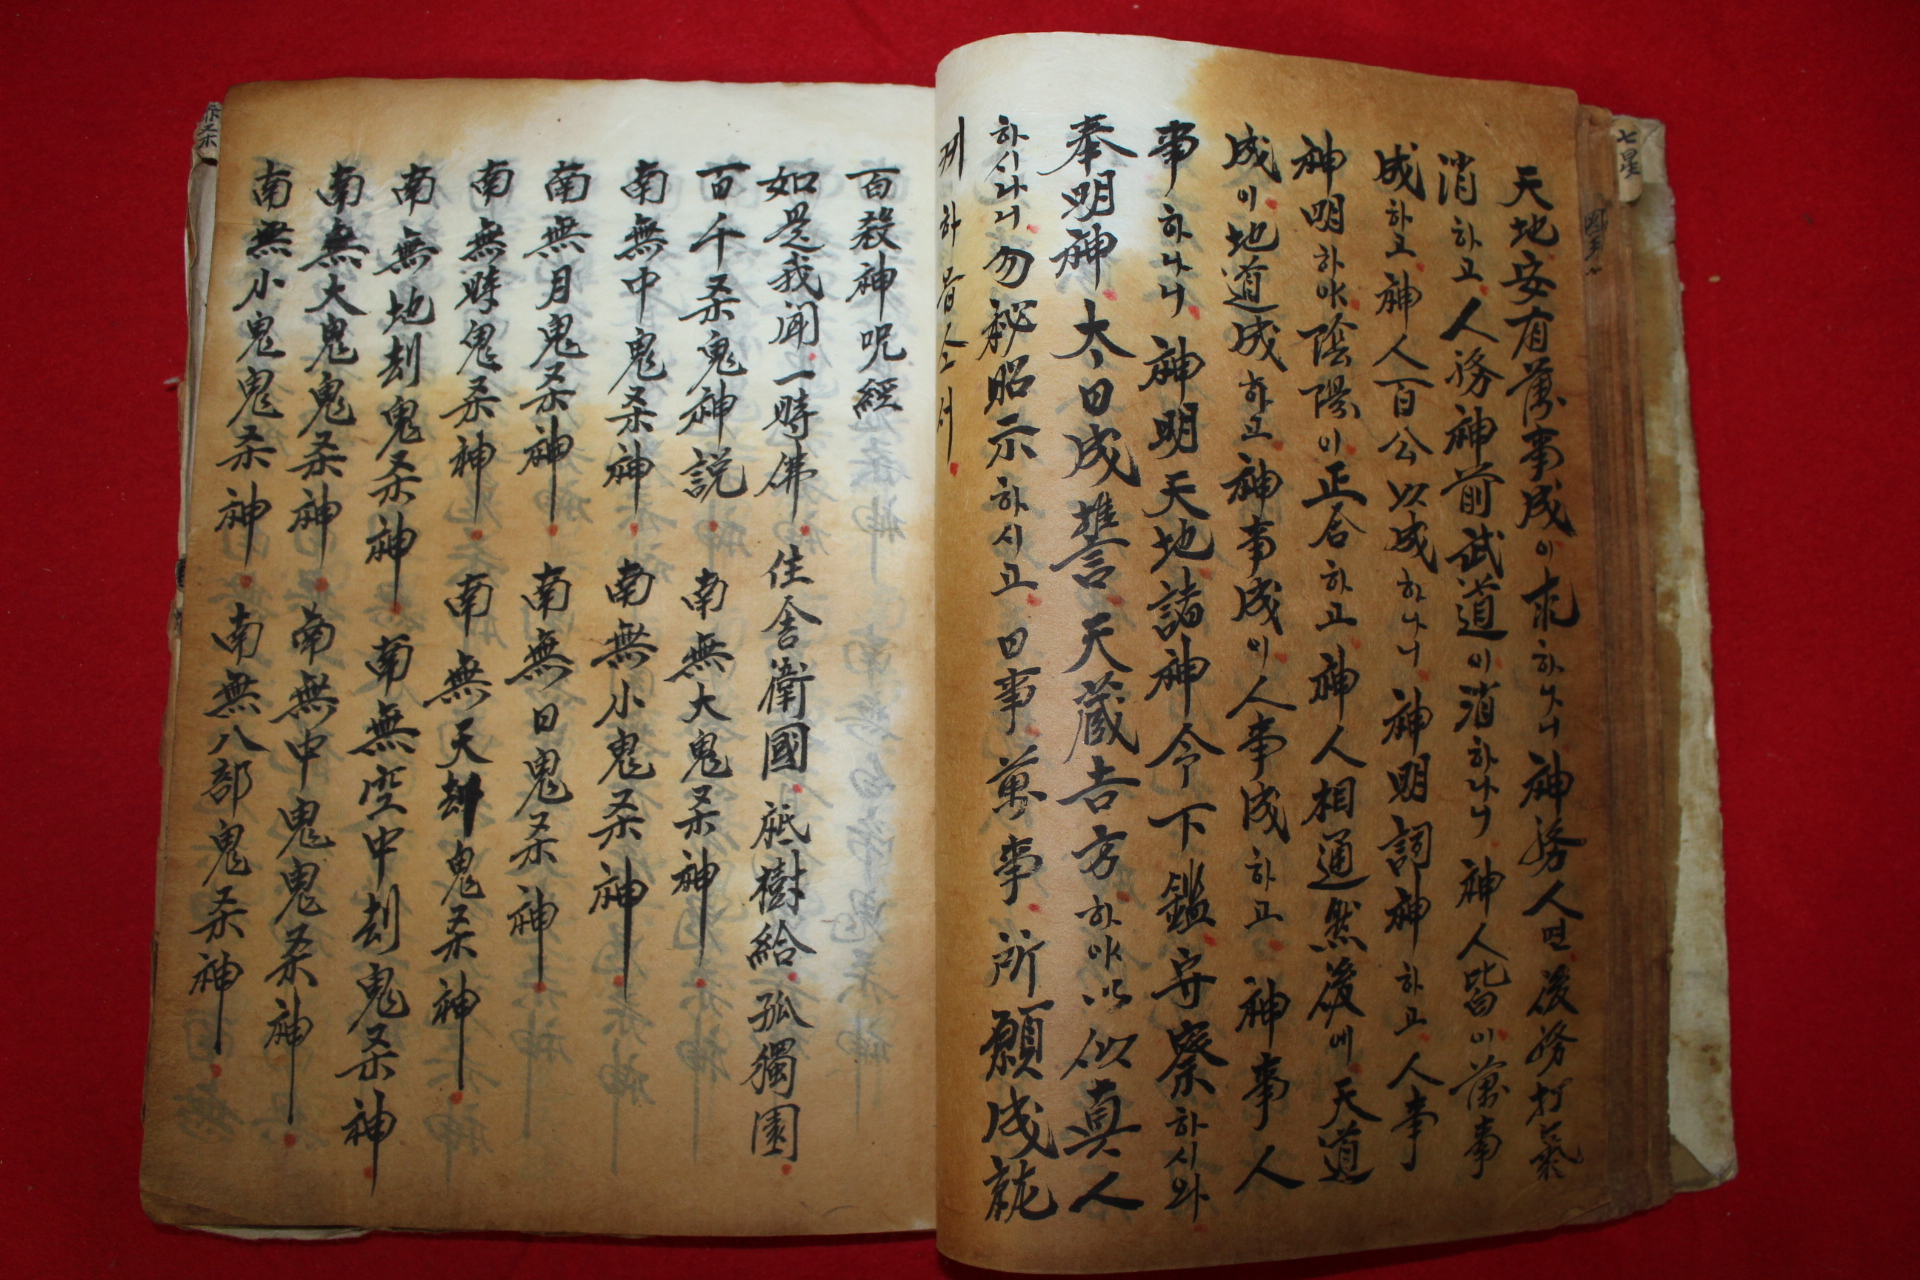 天地安有萬事成이求하나니神務人면後務打氣
消하고人務神前武道이消하나니神人皆이萬事
成하고神人百公以成하나니神明詞神하고人事
神明하야陰陽이正合하고神人相通然後에天道
成이地道成하고神事成이人事成하고神事人人
事하나니神明天地諸神令下鑑守察하시와
奉明神太日成誓天藏吉方하야以似真人
하시나니勿秘昭示하시고日事萬事所願成就
케하옵소서
百殺神呪經
如是我聞一時佛住舍衛國祇樹給孤獨園
百千杀鬼神説南無大鬼杀神
南無中鬼杀神南無小鬼杀神
南無月鬼杀神南無日鬼杀神
南無時鬼杀神南無天刦鬼杀神
南無地刦鬼杀神南無空中刦鬼杀神
南無大鬼鬼杀神南無中鬼鬼杀神
南無小鬼鬼杀神南無八部鬼杀神
七星